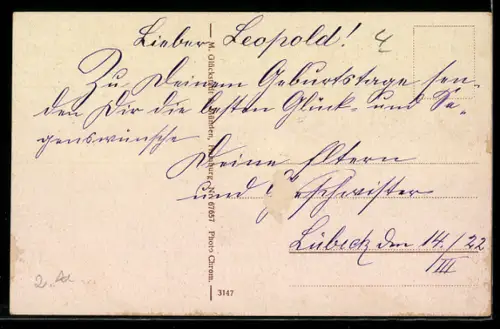 Lieber Leopold!
Zu Deinem Geburtstage sen-
den Dir die besten Glück- und Se-
genswünsche
Deine Eltern
und Geschwister
Lübeck den 14./22
III
M. Glückstadt & Münden, Hamburg, No. 67657 Photo Chrom.
3147